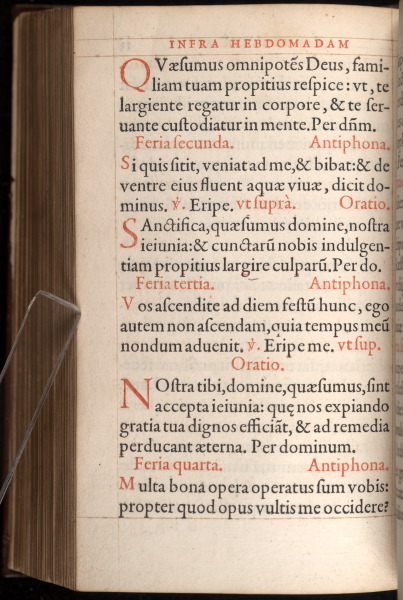 INFRA HEBDOMADAM
QVæſumus omnipotẽs Deus, fami-
liam tuam propitius reſpice: vt, te
largiente regatur in corpore, & te ſer-
uante cuſtodiatur in mente. Per dñm.
Feria ſecunda. Antiphona.
Si quis ſitit, veniat ad me, & bibat: & de
ventre eius fluent aquæ viuæ, dicit do-
minus. ℣. Eripe. vt ſuprà. Oratio.
SAnctifica, quæſumus domine, noſtra
ieiunia: & cunctarũ nobis indulgen-
tiam propitius largire culparũ. Per do.
Feria tertia. Antiphona.
Vos aſcendite ad diem feſtũ hunc, ego
autem non aſcendam, quia tempus meũ
nondum aduenit. ℣. Eripe me. vt ſup.
Oratio.
NOſtra tibi, domine, quæſumus, ſint
accepta ieiunia: quę nos expiando
gratia tua dignos efficiãt, & ad remedia
perducant æterna. Per dominum.
Feria quarta. Antiphona.
Multa bona opera operatus ſum vobis:
propter quod opus vultis me occidere?